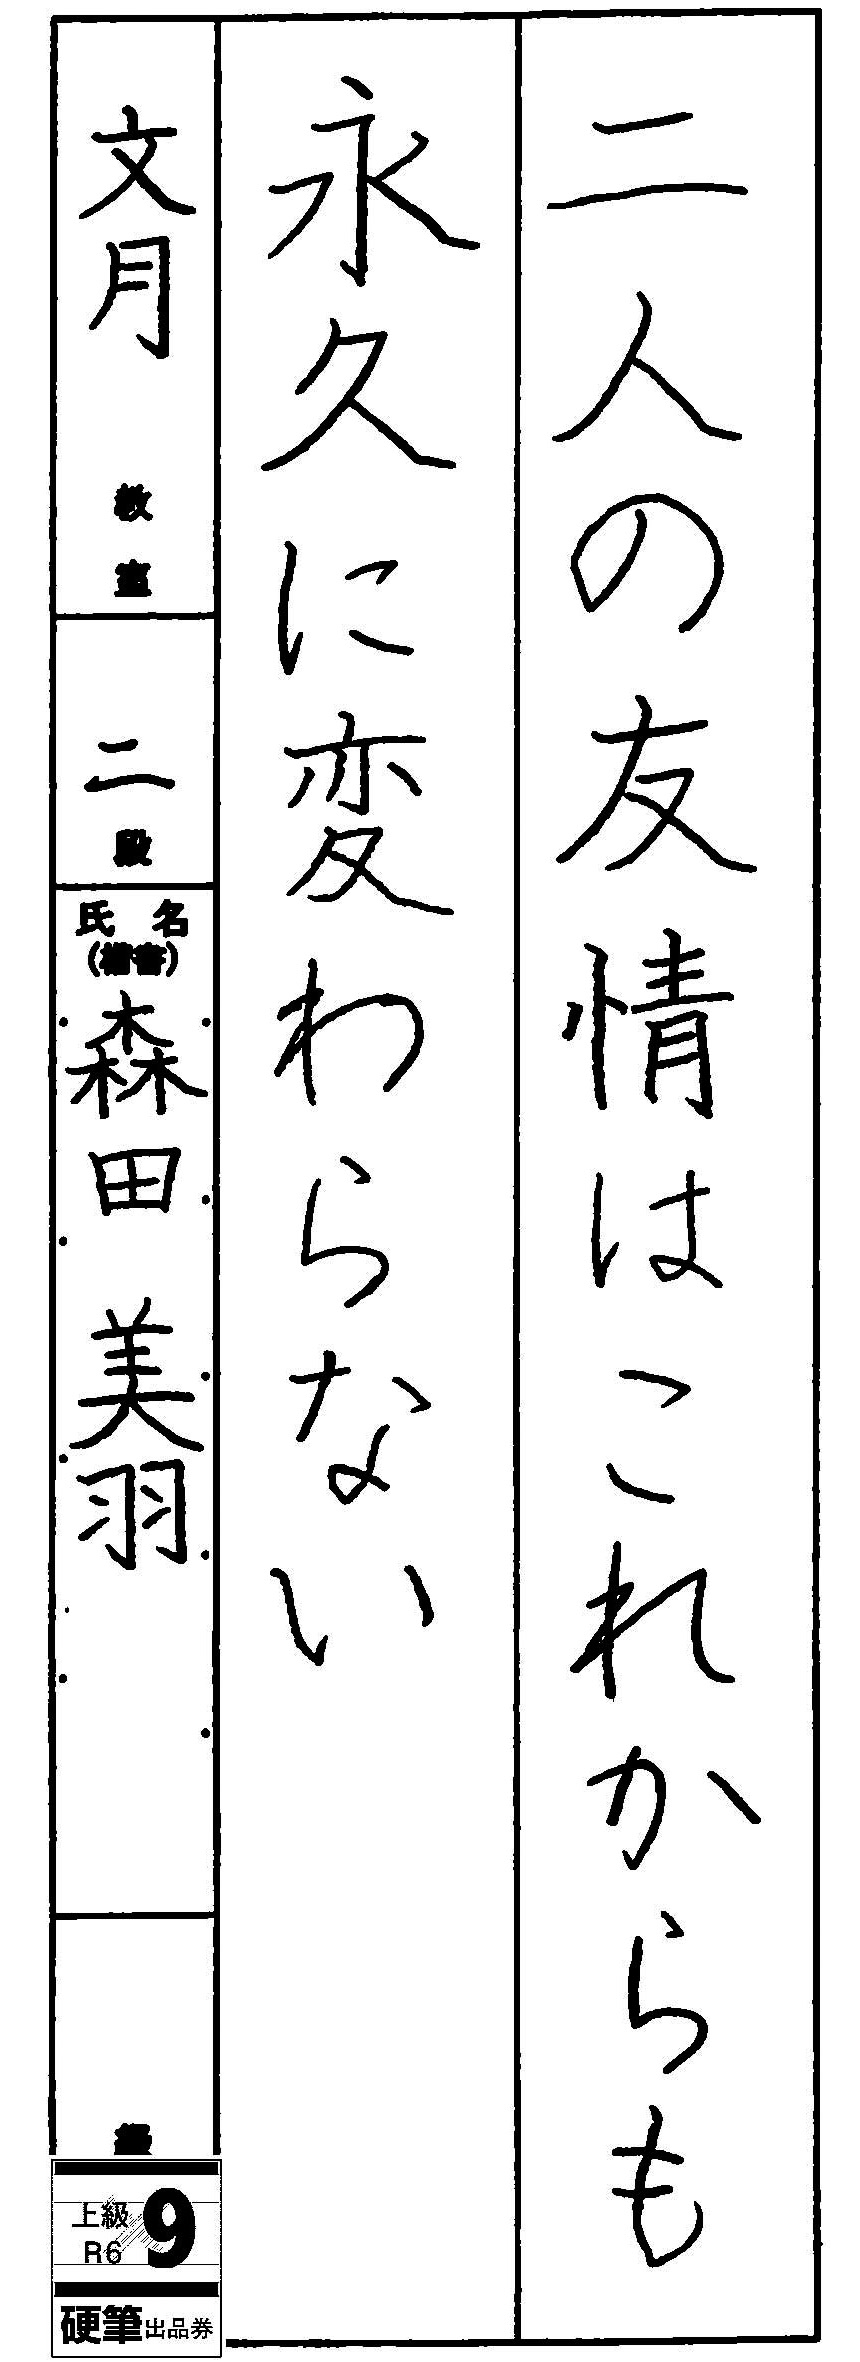 二人の友情はこれからも
永久に変わらない
文月 教室
二 段
氏 名
(楷書)
森田 美羽
級
上級
R6
9
硬筆出品券